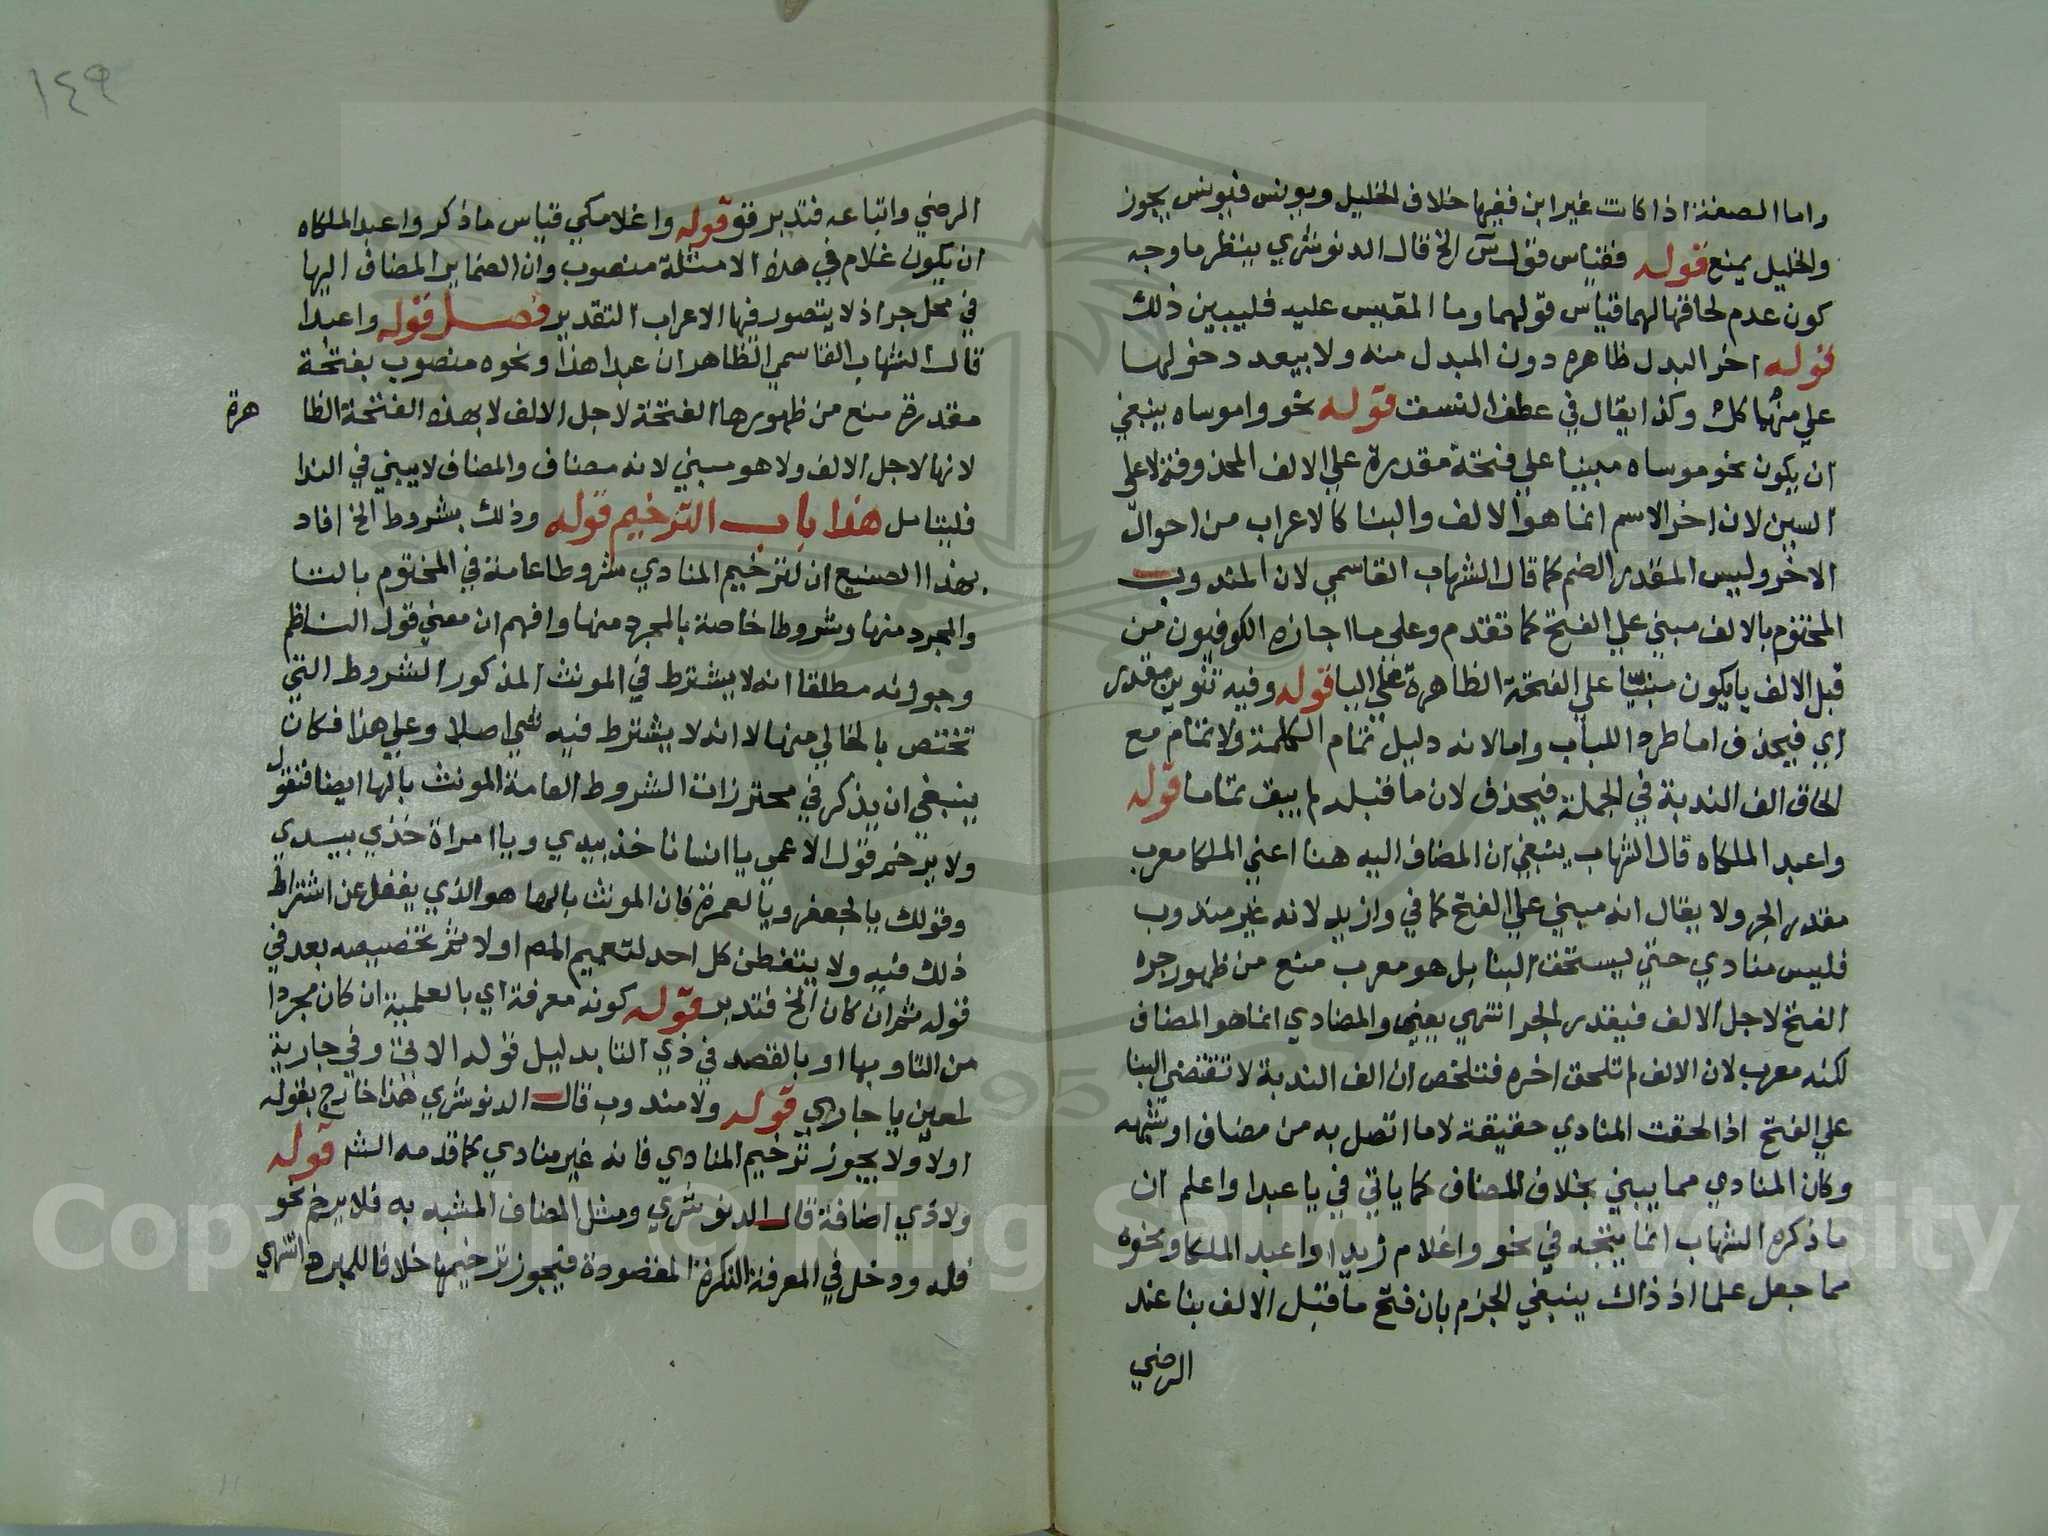 واما الصفة اذا كانت غير ابن ففيها خلاف الخليل ويونس فيونس يجوز
والخليل يمنع قوله فقياس قول س الخ قال الدنوشري ينظر ما وجه
كون عدم لحاقها لهما قياس قولهما وما المقيس عليه فليبين ذلك
قوله اخر البدل ظاهره دون المبدل منه ولا يبعد دخولها
علي منهما كك وكذا يقال في عطف النسق قوله نحو واموساه ينبغي
ان يكون نحو موساه مبنيا علي فتحة مقدرة علي الالف المحذوفة لا علي
السين لان اخر الاسم انما هو الالف والبنا كالاعراب من احوال
الاخر وليس المقدر الضم كما قال الشهاب القاسمي لان المندوب
المختوم بالالف مبني علي الفتح كما تقدم وعلى ما اجازه الكوفيون من
قبل الالف يا يكون مبنيا علي الفتحة الظاهرة علي اليا قوله وفيه تنوين مقدر
اي فيحذف اما طردا للباب واما لانه دليل تمام الكلمة ولا تمام مع
الحاق الف الندبة في الجملة فيحذف لان ما قبله لم يبق تماما قوله
واعبد الملكاه قال الشهاب ينبغي ان المضاف اليه هنا اعني الملكا معرب
مقدر الجر ولا يقال انه مبني علي الفتح كما في وازيد لانه غير مندوب
فليس منادي حتي يستحق البنا بل هو معرب منع من ظهور جره
الفتح لاجل الالف فيقدر الجر انتهي يعني والمضادي انما هو المضاف
لكنه معرب لان الالف لم تلحق اخره فتلخص ان الف الندبة لا تقتضي البنا
علي الفتح اذا لحقت المنادي حقيقة لا ما اتصل به من مضاف او شبهه
وكان المنادي مما يبني بخلاف المضاف كما ياتي في يا عبدا واعلم ان
ما ذكره الشهاب انما يتجه في نحو واغلام زيدا واعبد الملكا ونحوه
مما جعل علما اذ ذاك ينبغي الجزم بان فتح ما قبل الالف بنا عند
الرضي
١٤٩
الرضي واتباعه فتدبر قو قوله واغلامكي قياس ما ذكر واعبد الملكاه
ان يكون غلام في هذه الامثلة منصوب وان الضماير المضاف اليها
في محل جر اذ لا يتصور فيها الاعراب التقدير فصل قوله واعبدا
قال الشهاب القاسمي الظاهر ان عبدا هذا ونحوه منصوب بفتحة
مقدرة منع من ظهورها الفتحة لاجل الالف لا بهذه الفتحة الظا
هرة
لانها لاجل الالف ولا هو مبني لانه مضاف والمضاف لا يبني في الندا
فليتامل هذا باب الترخيم قوله وذلك بشروط الخ افاد
بهذا الصنيع ان لترخيم المنادي شروطا عامة في المختوم بالتا
والمجرد منها وشروطا خاصة بالمجرد منها وافهم ان معني قول الناظم
وجوزنه مطلقا انه لا يشترط في المونث المذكور الشروط التي
تختص بالخالي منها لا انه لا يشترط فيه شي اصلا وعلي هذا فكان
ينبغي ان يذكر في محترزات الشروط العامة المونث بالها ايضا فنقول
ولا يرخم قول الاعمي يا انسانا خذ بيدي ويا امراة خذي بيدي
وقولك يا لجعفر ويا لعمرة فان المونث بالها هو الذي يغفل عن اشتراط
ذلك فيه ولا يتفطن كل احد لتعميم المص اولا ثم تخصيصه بعد في
قوله ثم ان كان الخ فتدبر قوله كونه معرفة اي بالعلمية ان كان مجردا
من التا وبها او بالقصد في ذي التا بدليل قوله الاتي وفي جارية
لمعين يا جاري قوله ولا مندوب قال الدنوشري هذا خارج بقوله
اولا ولا يجوز ترخيم المنادي فانه غير منادي كما قدمه الش قوله
ولا ذي اضافة قال الدنوشري ومثل المضاف المشبه به فلا يرخم نحو
قله ودخل في المعرفة النكرة المقصودة فيجوز ترخيمها خلافا للمبرد انتهي
Copyright © King Saud University